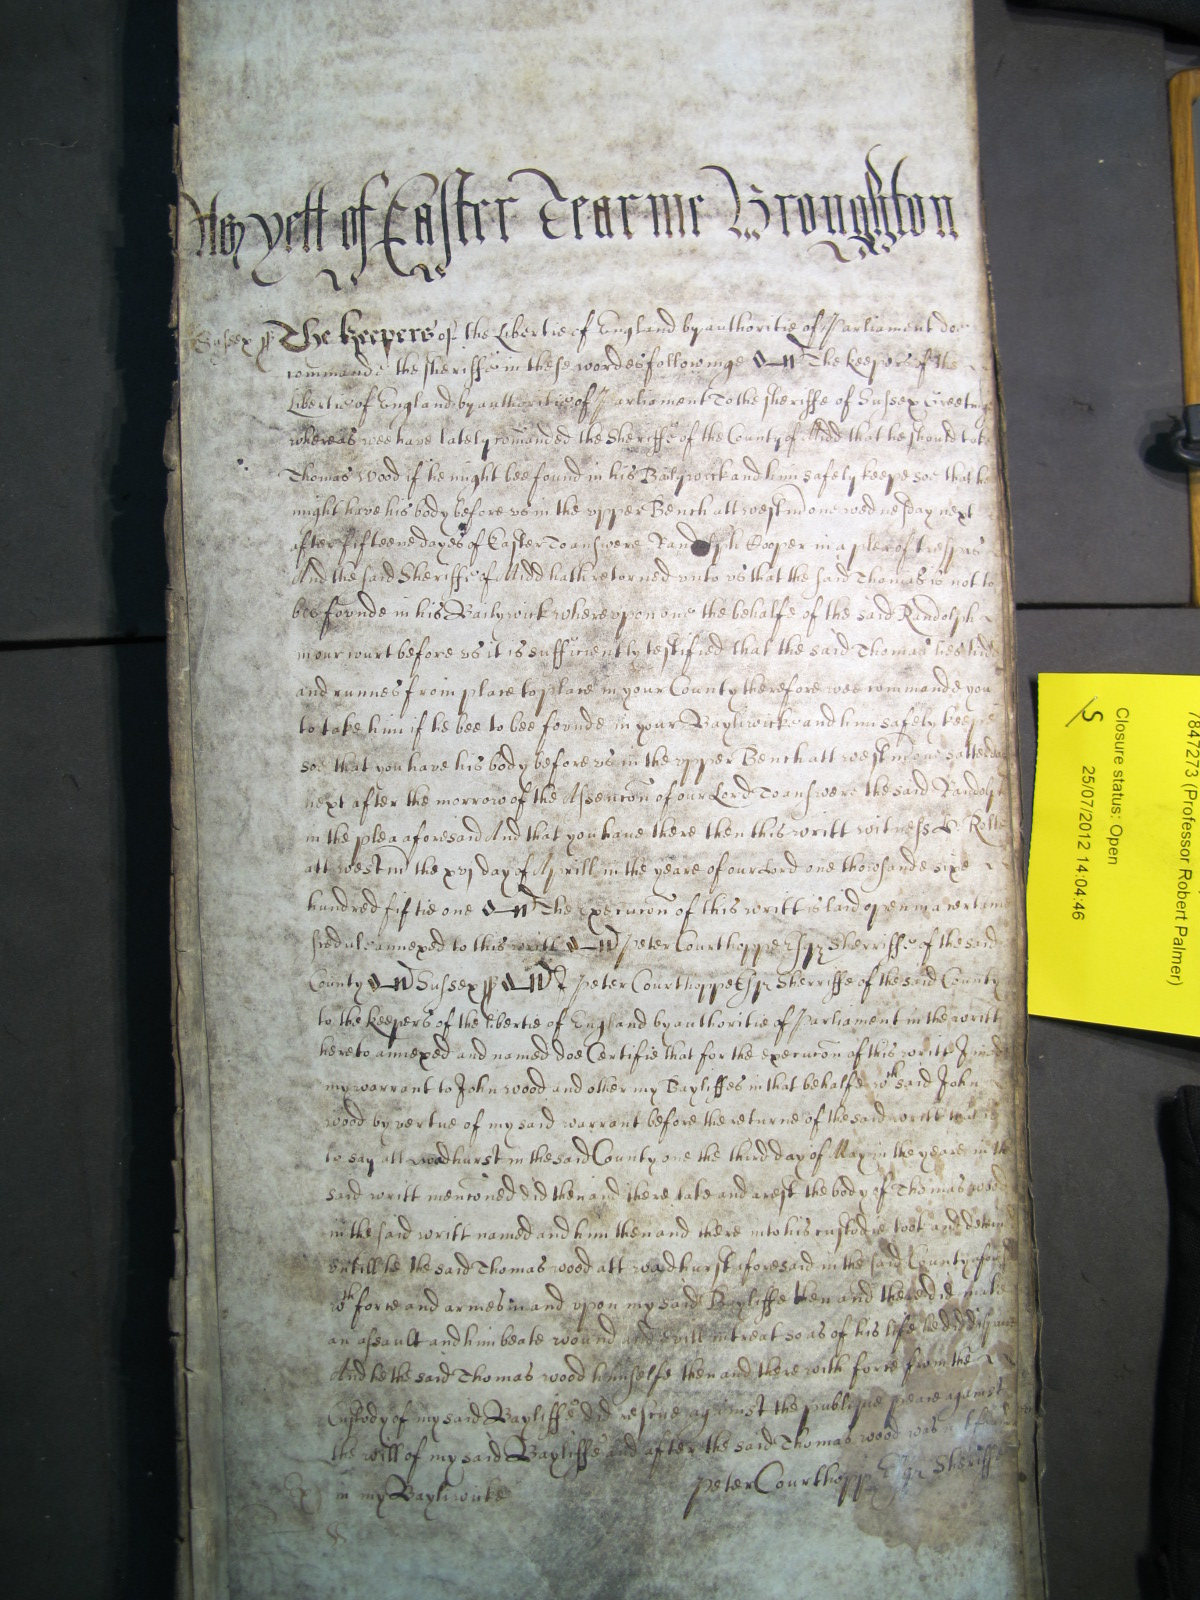 yett of Easter Tearme Broughton
Sussex ss The keepers of the Libertie of England by authoritie of Parliament doe
commande the sheriffe in these wordes followinge The keepers of the
Libertie of England by authoritie of Parliament To the sheriffe of Sussex Greeting
whereas wee have lately comanded the Sheriffe of the County of Midd that he should take
Thomas Wood if he might bee found in his Bailywick and him safely keepe soe that he
might have his body before us in the upper Bench att westm one wednesday next
after fifteene dayes of Easter To answere Randolph Cooper in a plea of trespas
And the said Sheriffe of Midd hath retorned unto us that the said Thomas is not to
bee founde in his Bailywick whereupon one the behalfe of the said Randolph
in our court before us it is sufficiently testified that the said Thomas lies hidd
and runnes from place to place in your County therefore wee commande you
to take him if he bee to bee founde in your Bayliwicke and him safely keepe
soe that you have his body before us in the upper Bench att westm one
next after the morrow of the Assencon of our Lord To answere the said Randolph
in the plea aforesaid And that you have there then this writt witness H Rolle
att westm the xvj day of Aprill in the yeare of our Lord one thowsande sixe
hundred fiftie one The execucon of this writt is laid open in a certaine
sedule annexed to this writt Peter Courthoppe Esqr Sherriffe of the said
County Sussex ss I Peter Courthoppe Esqr Sherriffe of the said County
to the keepers of the libertie of England by authoritie of Parliament in the writt
hereto annexed and named doe Certifie that for the execucon of this writt I made
my warrant to John wood and other my Bayliffes in that behalfe wch said John
wood by vertue of my said warrant before the returne of the said writt that is
to say att wadhurst in the said County one the third day of May in the yeare in the
said writt menconed did then and there take and arest the body of Thomas wood
in the said writt named and him then and there into his custodie tooke and
untill he the said Thomas wood att wadhurst aforesaid in the said County
wth force and armes in and upon my said Bayliffe then and there did make
an assault and him beate wound and evill intreat so as of his life he did dispaire
And he the said Thomas wood himselfe then and there with force from the
Custody of my said Bayliffe did rescue against the publique peace against
the will of my said Bayliffe and after the said Thomas wood was not found
in my Bayliwicke Peter Courthopp Esqr Sheriffe
7847273 (Professor Robert Palmer)
Closure status: Open
25/07/2012 14:04:46
S